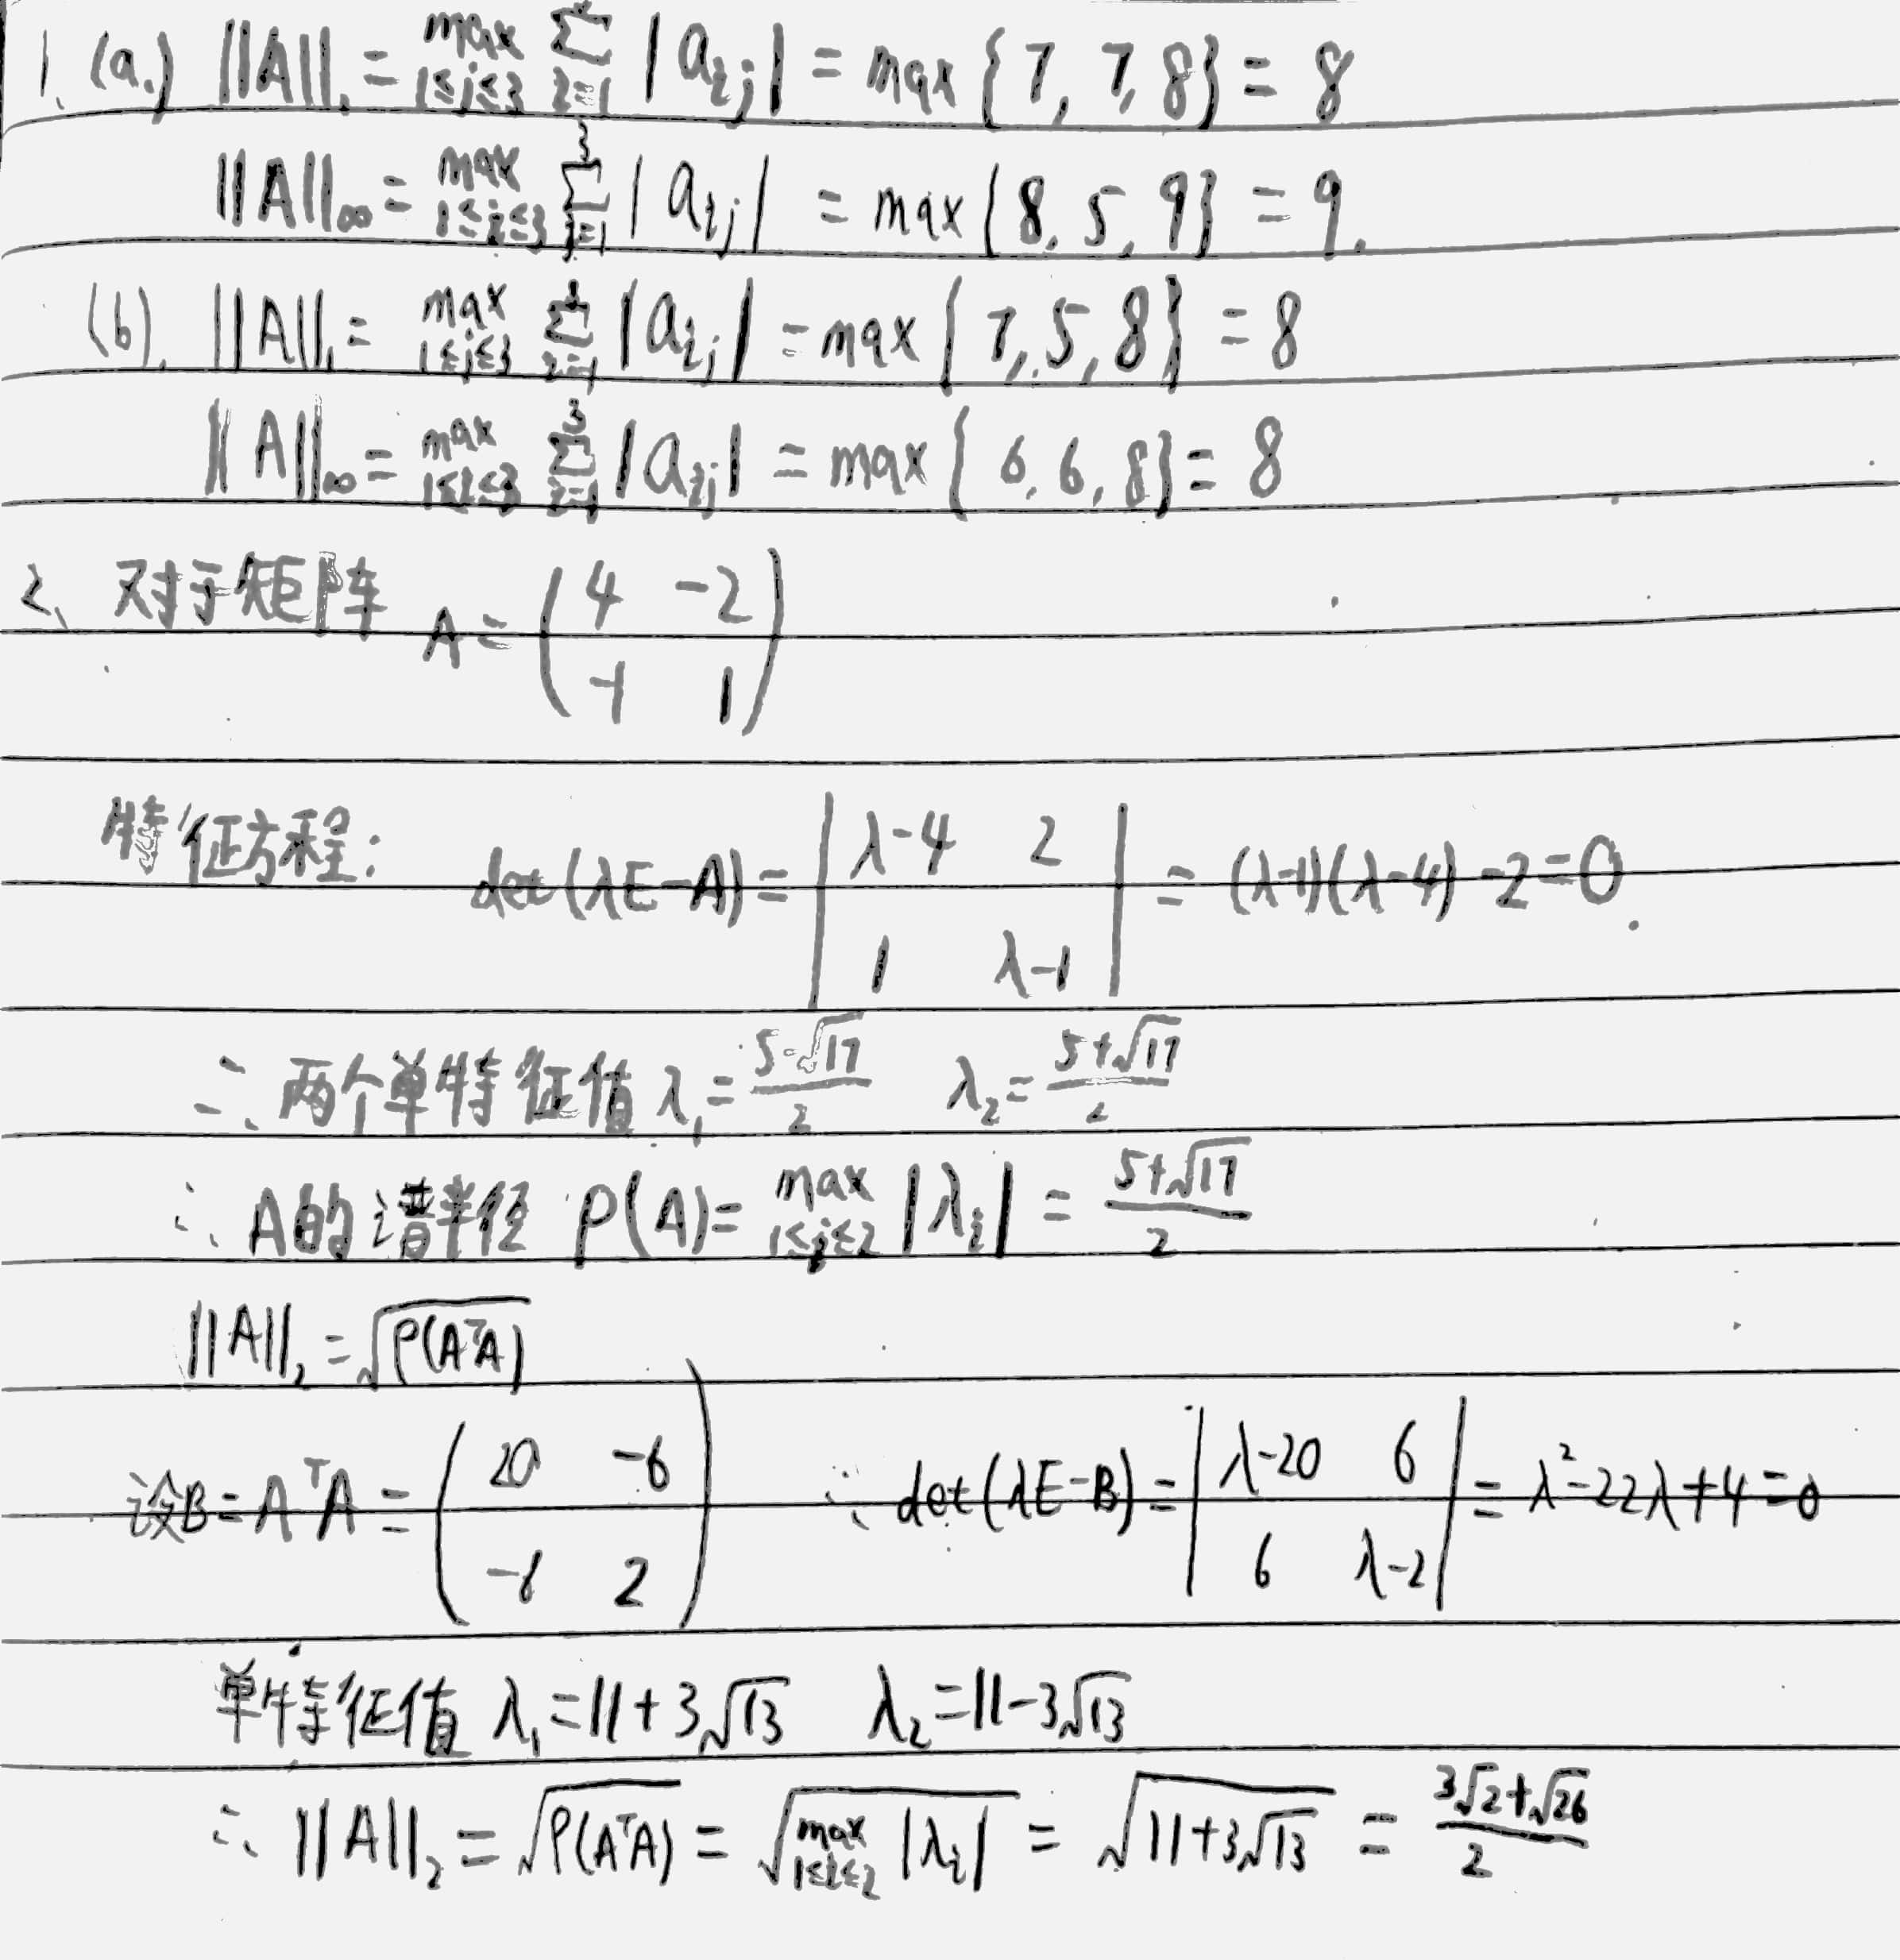 1. (a.) ||A||₁ = max_{1≤j≤3} ∑_{i=1}^{3} |a_{ij}| = max{7, 7, 8} = 8
||A||_∞ = max_{1≤i≤3} ∑_{j=1}^{3} |a_{ij}| = max{8, 5, 9} = 9.
(b). ||A||₁ = max_{1≤j≤3} ∑_{i=1}^{3} |a_{ij}| = max{7, 5, 8} = 8
||A||_∞ = max_{1≤i≤3} ∑_{i=1}^{3} |a_{ij}| = max{6, 6, 8} = 8
2、对于矩阵 A = (4 -2; -1 1)
特征方程: det(λE-A) = |λ-4 2; 1 λ-1| = (λ-1)(λ-4)-2=0.
∴ 两个单特征值 λ₁ = (5-√17)/2 λ₂ = (5+√17)/2
∴ A的谱半径 ρ(A) = max_{1≤i≤2} |λ_i| = (5+√17)/2
||A||₂ = √(ρ(AᵀA))
设B=AᵀA = (20 -6; -6 2) ∴ det(λE-B) = |λ-20 6; 6 λ-2| = λ²-22λ+4=0
单特征值 λ₁=11+3√13 λ₂=11-3√13
∴ ||A||₂ = √(ρ(AᵀA)) = √(max_{1≤i≤2} |λ_i|) = √(11+3√13) = (3√2+√26)/2